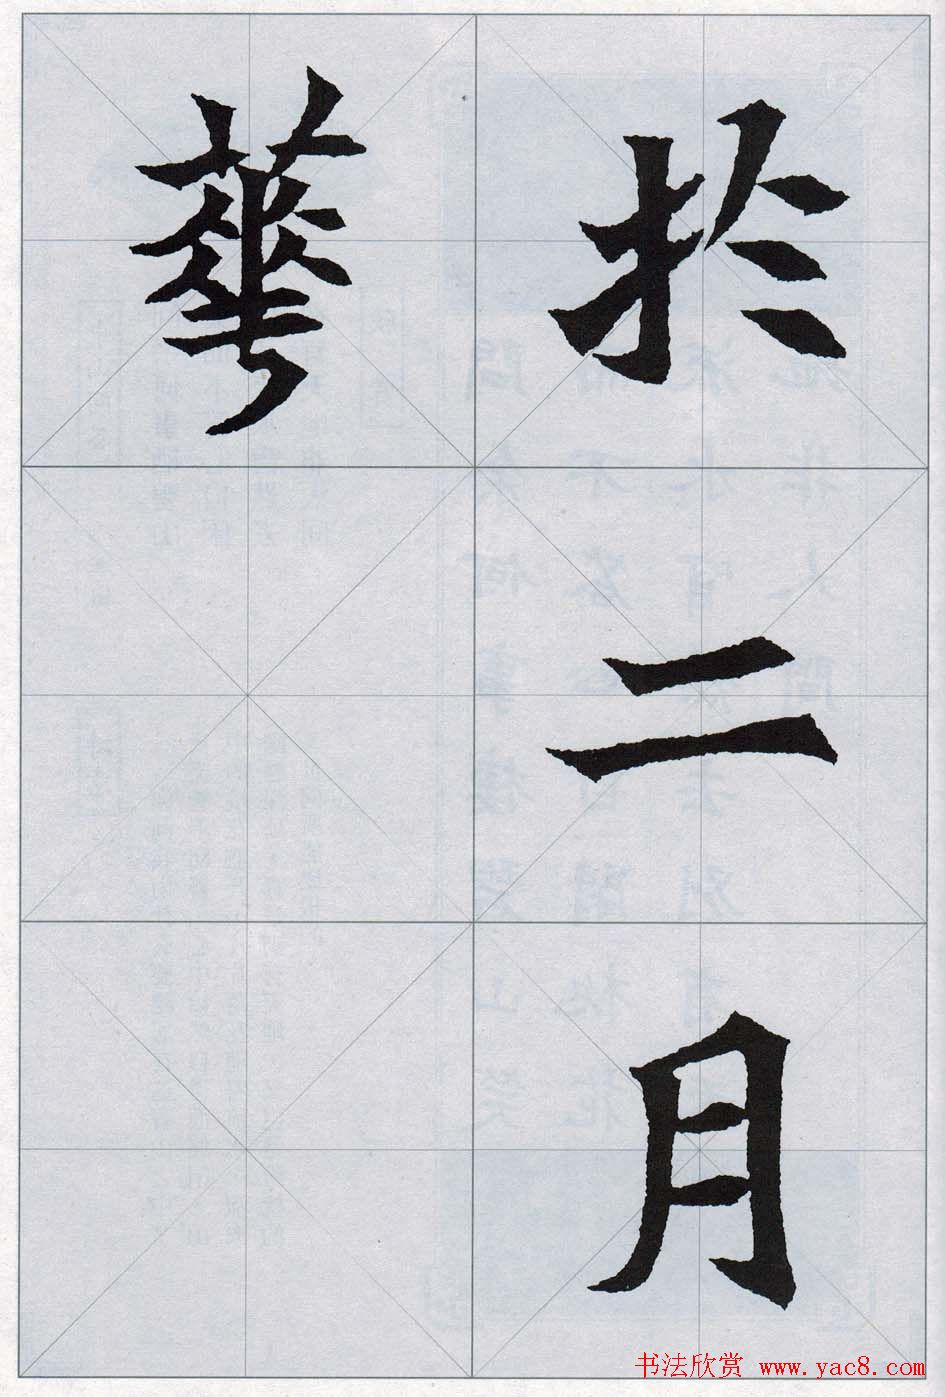 於二月
華
书法欣赏 www.yac8.com